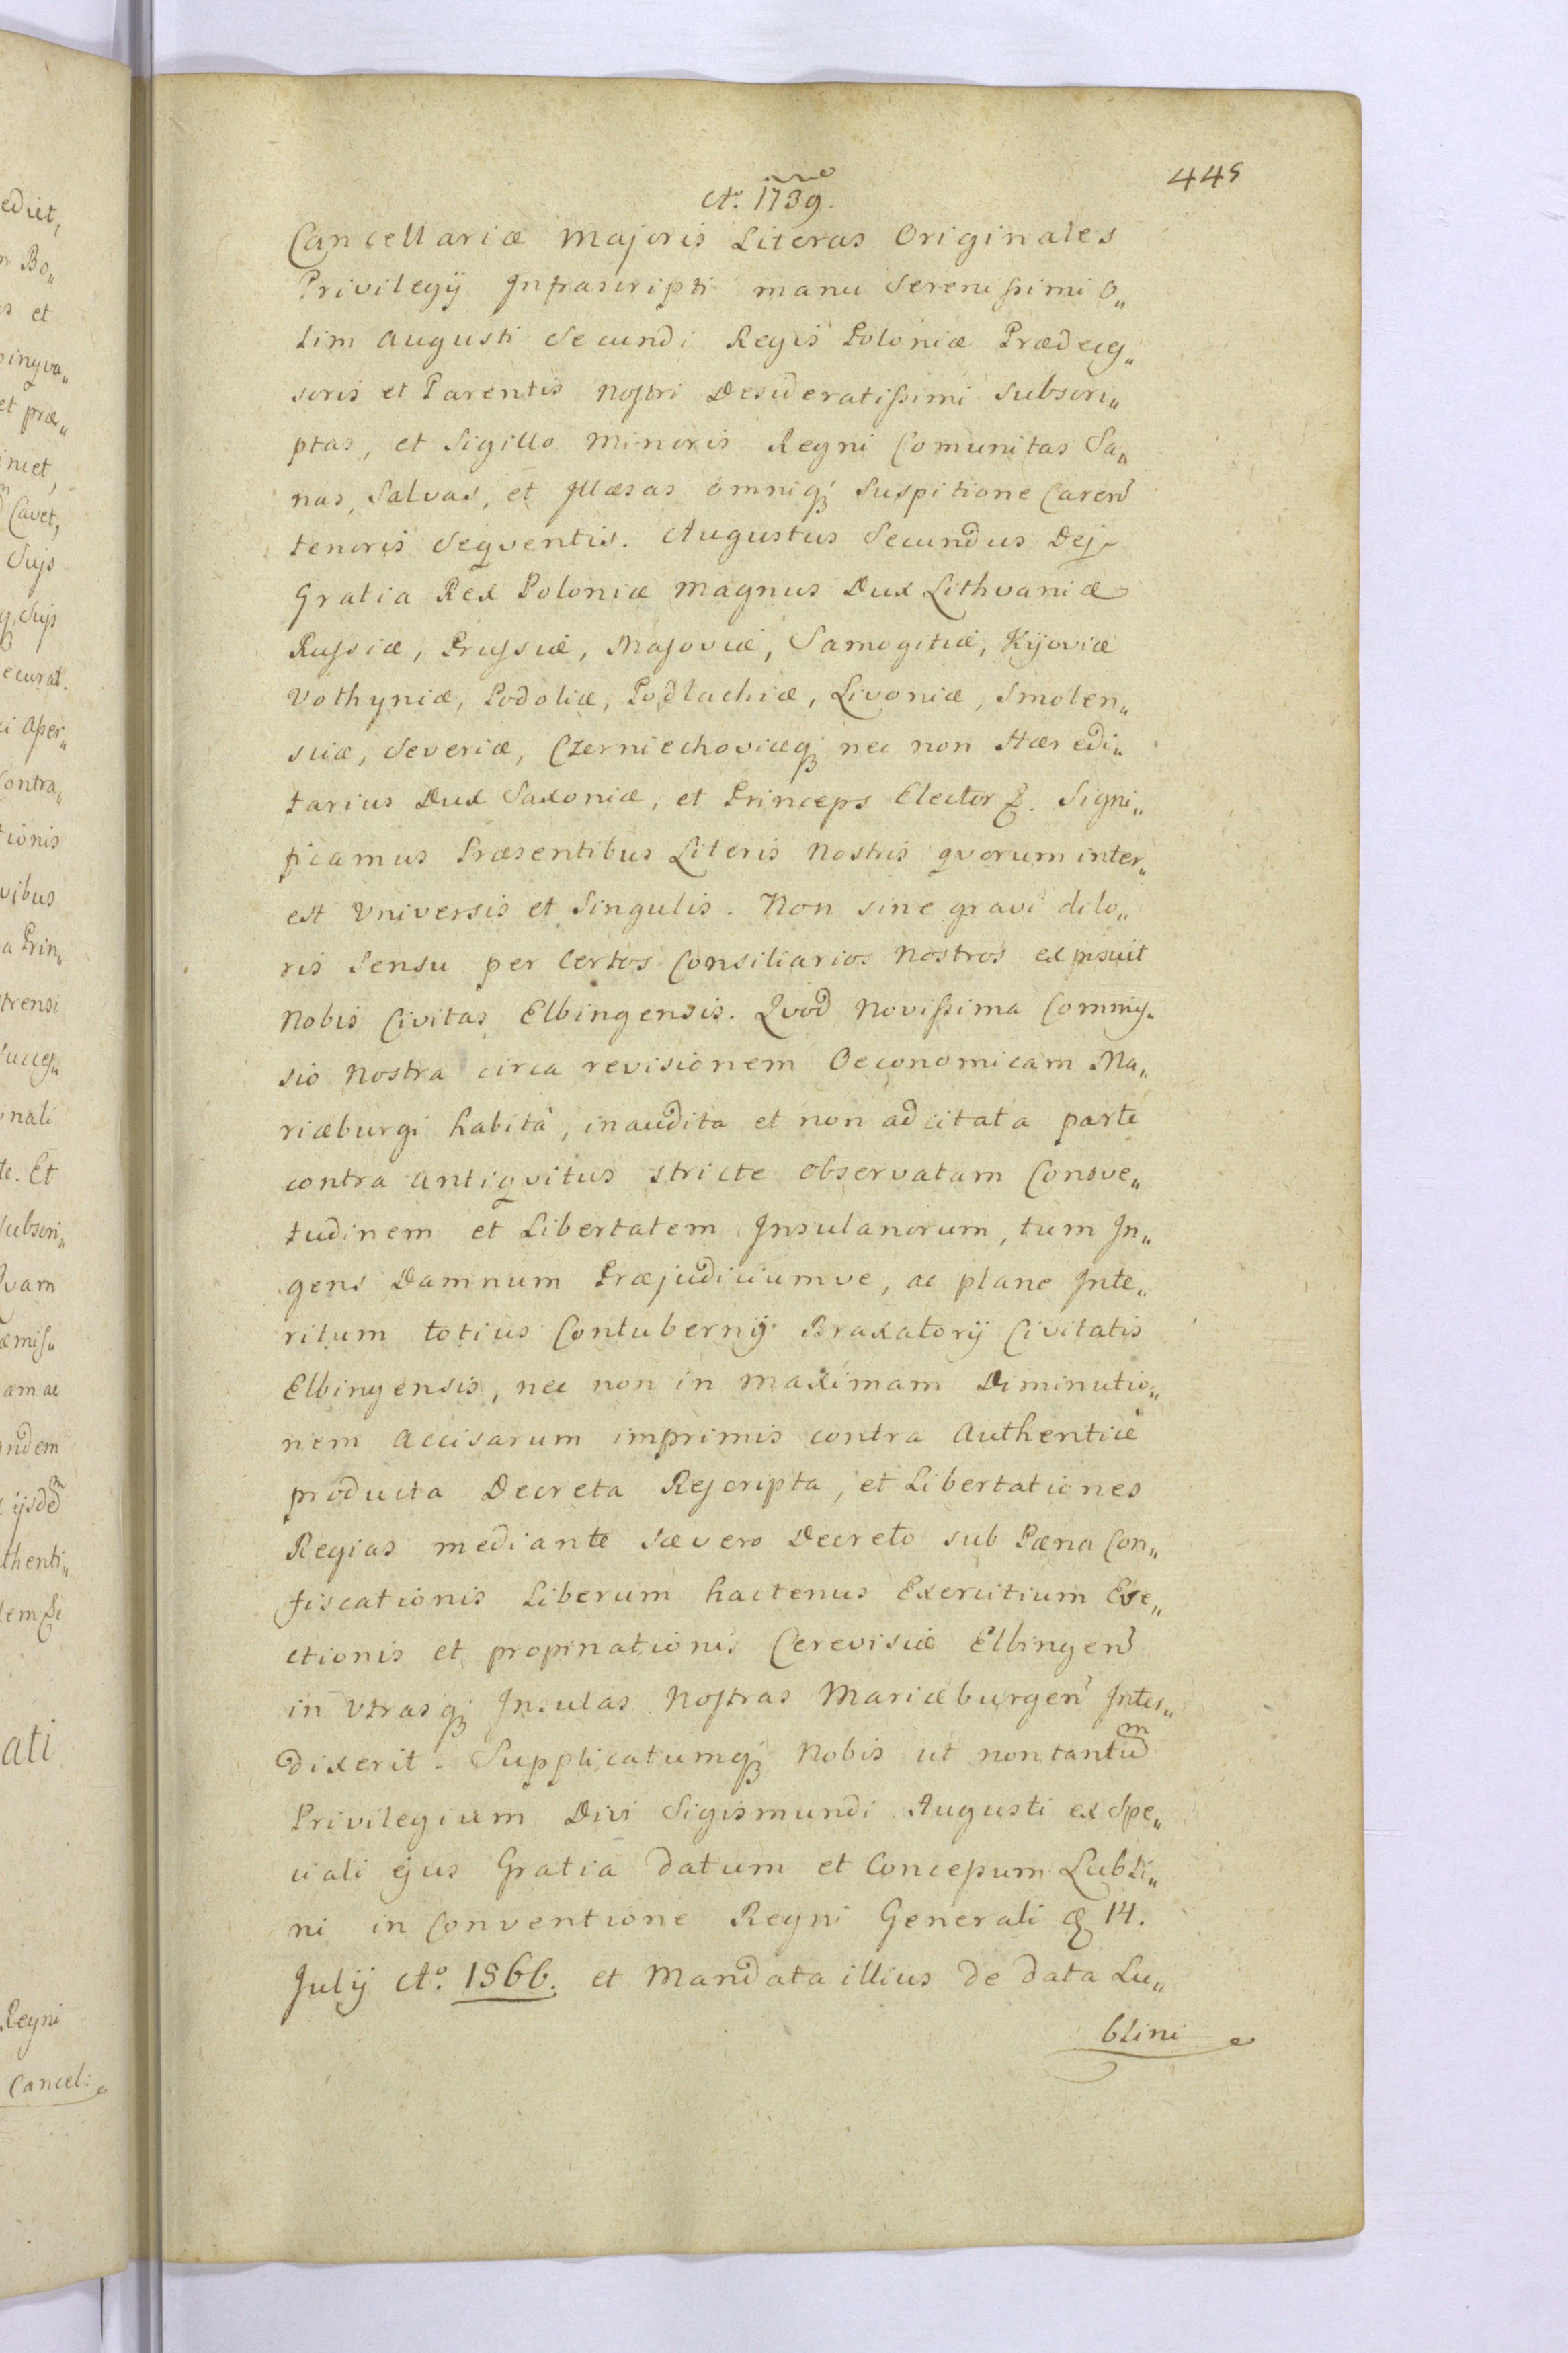 445
Ao. 1739.
Cancellariæ Majoris Literas Originales
Privilegij Infrascripti manu Serenissimi O„
lim Augusti Secundi Regis Poloniæ Prædeces„
soris et Parentis Nostri Desideratissimi Subscri„
ptas, et Sigillo Minoris Regni Comunitas Sa„
nas, Salvas, et Illæsas omniq; Suspitione Caren
tenoris Seqventis. Augustus Secundus Dej
Gratia Rex Poloniæ Magnus Dux Lithvaniæ
Russiæ, Prussiæ, Masoviæ, Samogitiæ, Kijoviæ
Volhyniæ, Podoliæ, Podlachiæ, Livoniæ, Smolen„
sciæ, Severiæ, Czerniechoviæq; nec non Hæredi„
tarius Dux Saxoniæ, et Princeps Elector &. Signi„
ficamus Præsentibus Literis Nostris qvorum inter„
est Vniversis et Singulis. Non sine gravi dolo„
ris Sensu per Certos Consiliarios Nostros exposuit
Nobis Civitas Elbingensis. Qvod Novissima Commis„
sio Nostra circa revisionem Oeconomicam Ma„
riæburgi habità, inaudita et non adcitata parte
contra antiqvitus stricte observatam Consve„
tudinem et Libertatem Insulanorum, tum In„
gens Damnum Præjudiciumve, ac plane Inte„
ritum totius Contubernij Braxatorij Civitatis
Elbingensis, nec non in maximam Diminutio„
nem Accisarum imprimis contra Authentice
producta Decreta Rescripta, et Libertationes
Regias mediante sævero Decreto sub Pæna Con„
fiscationis Liberum hactenus Exercitium Eve„
ctionis et propinationis Cerevisiæ Elbingen
in Vtrasq; Insulas Nostras Mariæburgen Inter„
dixerit. Supplicatumq; Nobis ut non tantum
Privilegium Divi Sigismundi Augusti ex Spe„
ciali ejus Gratia datum et Concessum Lubli„
ni in Conventione Regni Generali d 14.
Julij Ao. 1566. et Mandata illius de data Lu„
blini